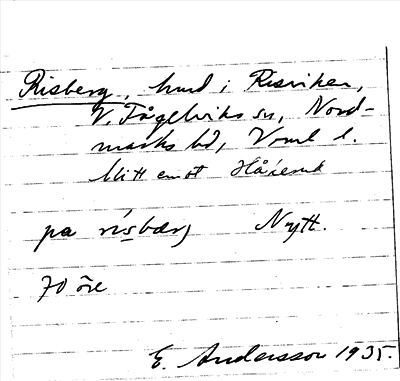 Risberg, hmd i Risviken,
V. Fågelviks sn, Nord-
marks hd, Vrml l.
Mitt emot
pa risbærj Nytt.
70 öre
E. Andersson 1935.